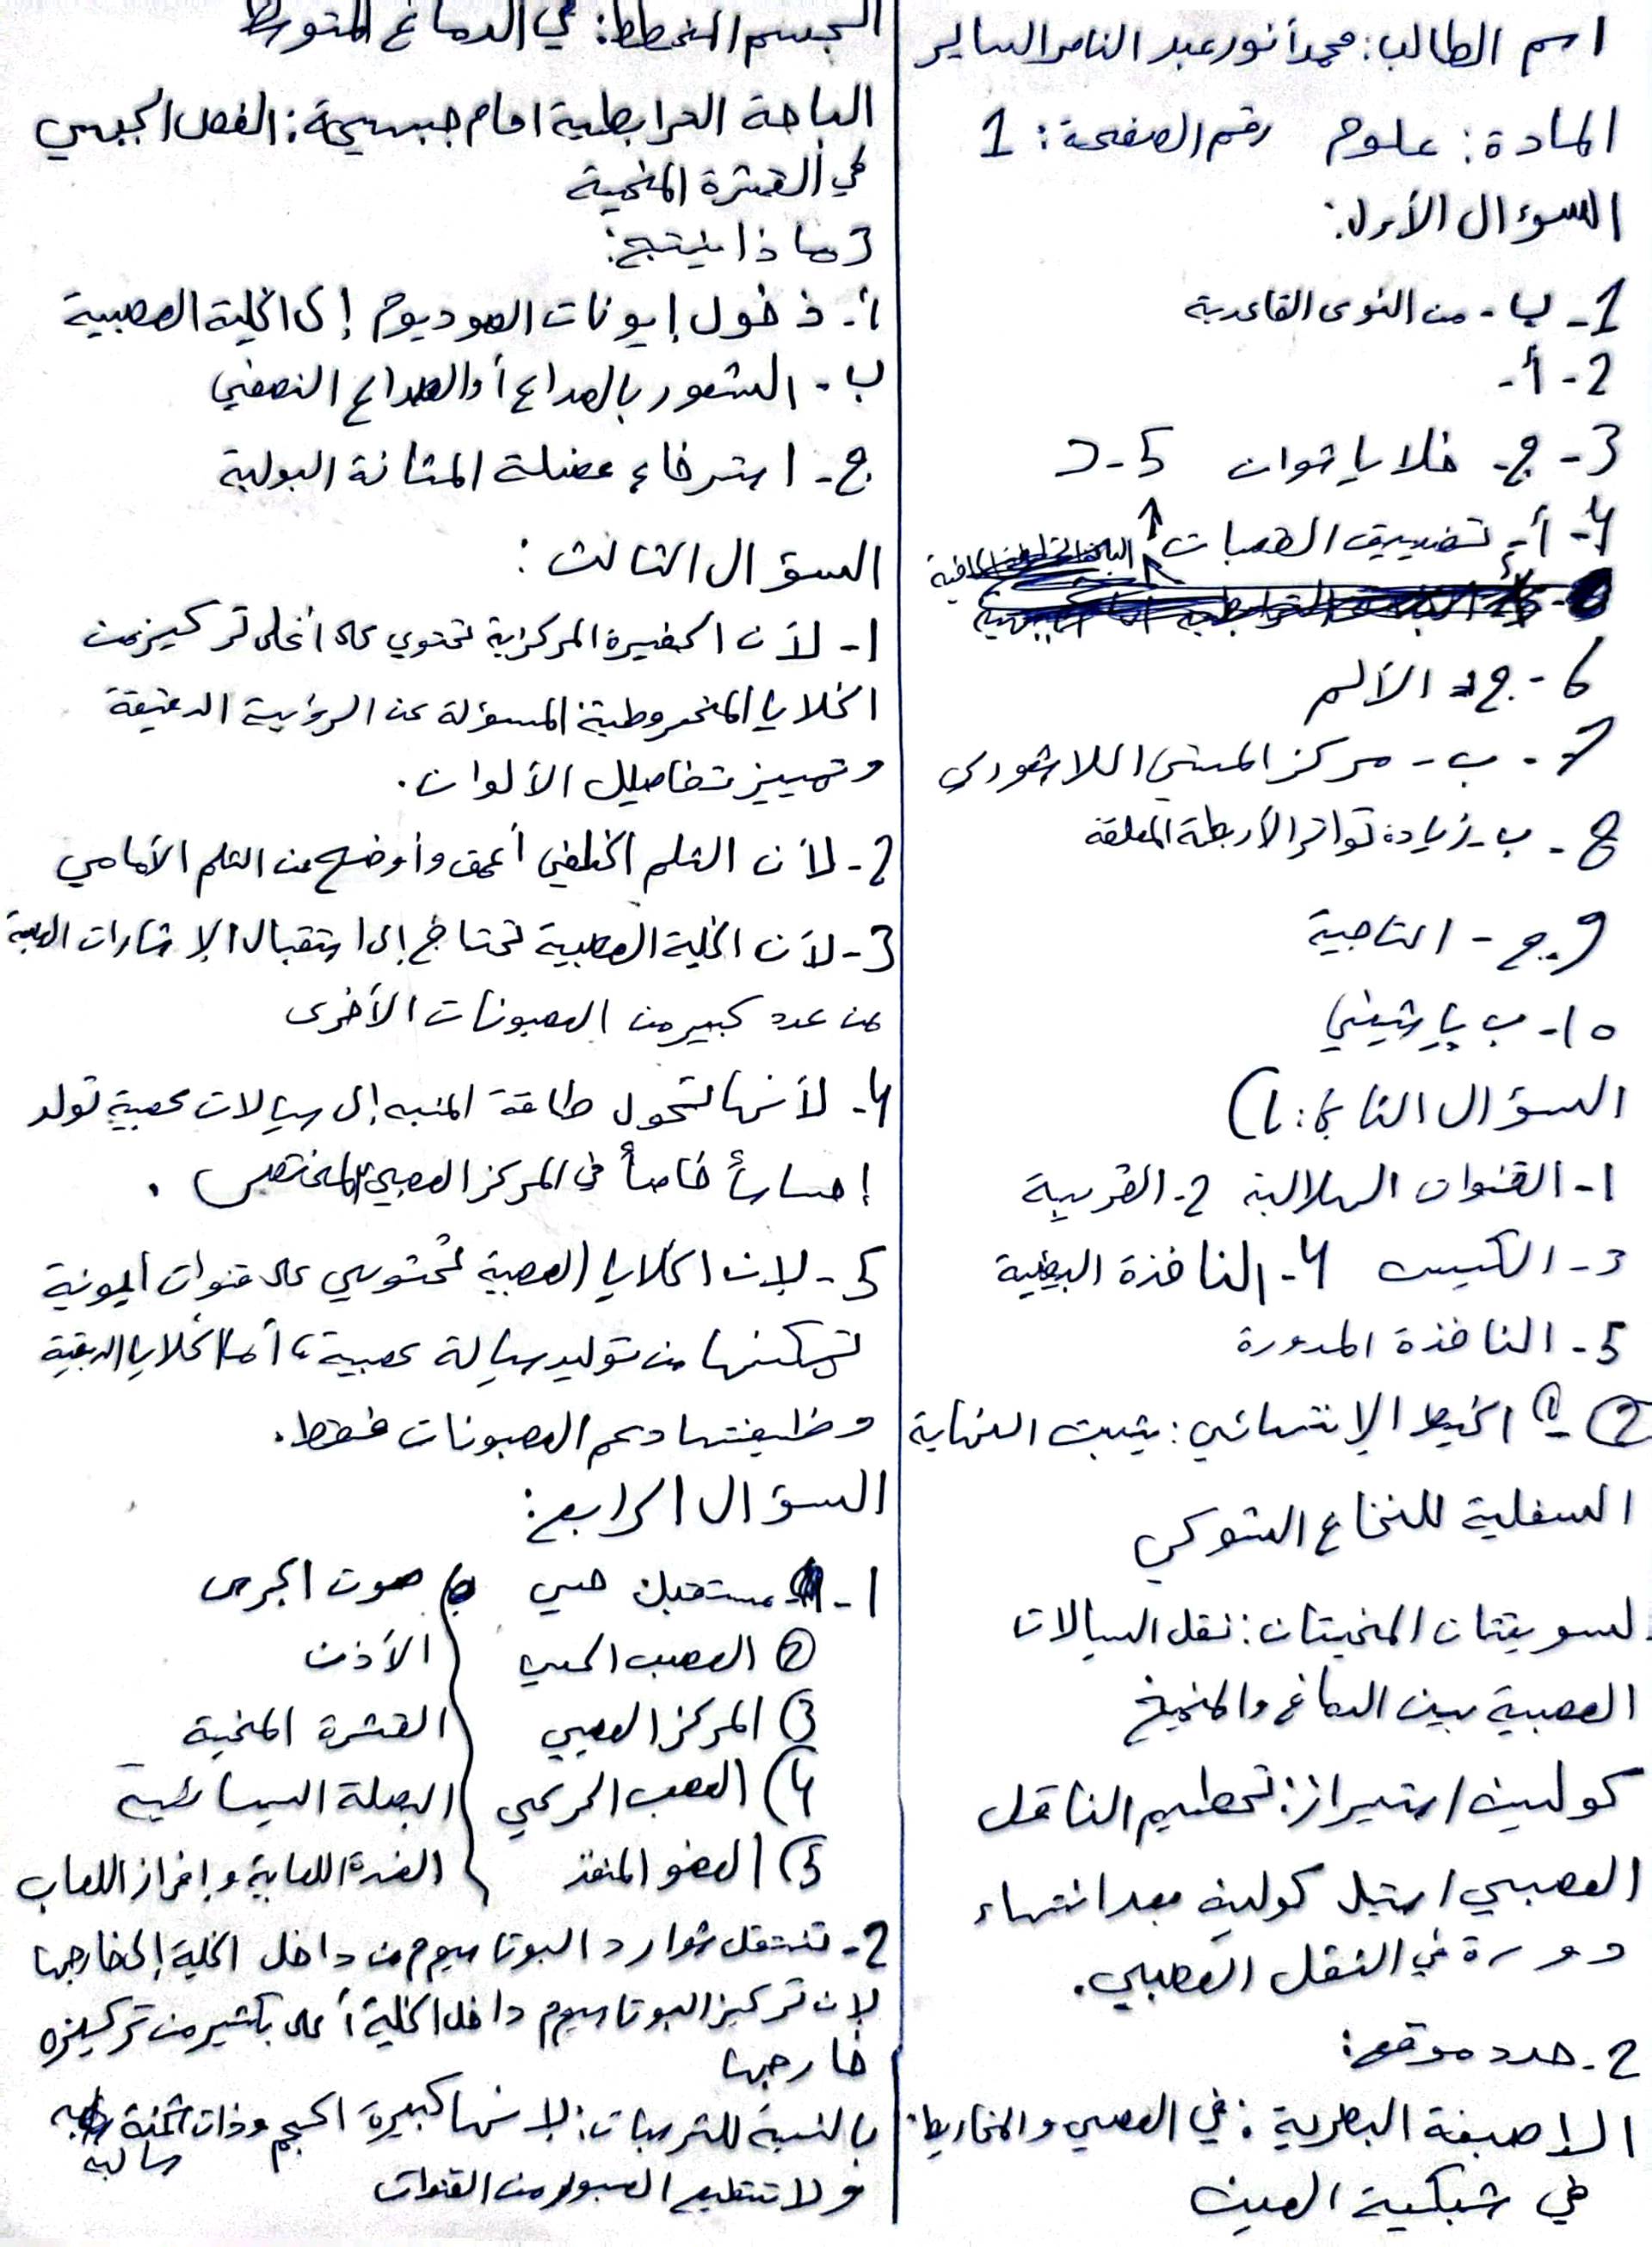 اسم الطالب: محمد أنور عبد الناصر الساير
المادة: علوم رقم الصفحة: 1
السوء ال الأول:
1- ب - من النوى القاعدية
2 - أ -
3 - ج - خلايا شوان 5 - د
4 - أ - تضييق القصبات
6 - ج - الألم
7 - ب - مركز المشي اللاشعوري
8 - ب - زيادة تواتر الأربطة المعلقة
9 - ج - التاجية
10 - ب باشيني
السؤال الثاني: 1)
1 - القنوات الهلالية 2 - القريبة
3 - الكييس 4 - النافذة البيضية
5 - النافذة المدورة
2 - 1 الخيط الإنتهائي: يثبت النهاية
السفلية للنخاع الشوكي
لسويقتان المخيتان: نقل السيالات
العصبية بين الدماغ والمخيخ
كولين استيراز: تحطيم الناقل
العصبي استيل كولين بعد انتهاء
دوره في النقل العصبي.
2 - حدد موقع:
الاصبغة البصرية: في العصي والمخاريط
في شبكية العين
الجسم المخطط: في الدماغ المتوسط
الباحة الترابطية امام جبهية: الفص الجبهي
في القشرة المخية
3 ماذا ينتج:
أ - دخول إيونات الصوديوم إلى الخلية العصبية
ب - الشعور بالصداع أو الصداع النصفي
ج - استرخاء عضلة المثانة البولية
السؤال الثالث:
1 - لأن الحفيرة المركزية تحتوي على أعلى تركيز من
الخلايا المخروطية المسؤلة عن الرؤية الدقيقة
وتمييز تفاصيل الألوان.
2 - لأن الثلم الخلفي أعمق وأوضح من الثلم الأمامي
3 - لأن الخلية العصبية تحتاج إلى استقبال الإشارات العصبية
من عدد كبير من العصبونات الأخرى
4 - لأنها تحول طاقة المنبه إلى سيالات عصبية تولد
إحساسأ خاصأ في المركز العصبي المختص.
5 - لإن الخلايا العصبية تحتوي على قنوات أيونية
تمكنها من توليد سيالة عصبية، أما الخلايا الدبقية
وظيفتها دعم العصبونات فقط.
السؤال الرابع:
1 - مستقبل حسي صوت الجرس
2 العصب الحسي الأذن
3) المركز العصبي القشرة المخية
4) العصب الحركي البصلة السيسائية
5) العضو المنفذ الغدة اللعابية وإفراز اللعاب
2 - تنتقل شوارد البوتاسيوم من داخل الخلية إلى خارجها
لان تركيز البوتاسيوم داخل الخلية أعلى بكثير من تركيزه
خارجها
بالنسبة للشرسبات: لإنها كبيرة الحجم وذات شحنة سالبة
ولا تستطيع العبور من القنوات